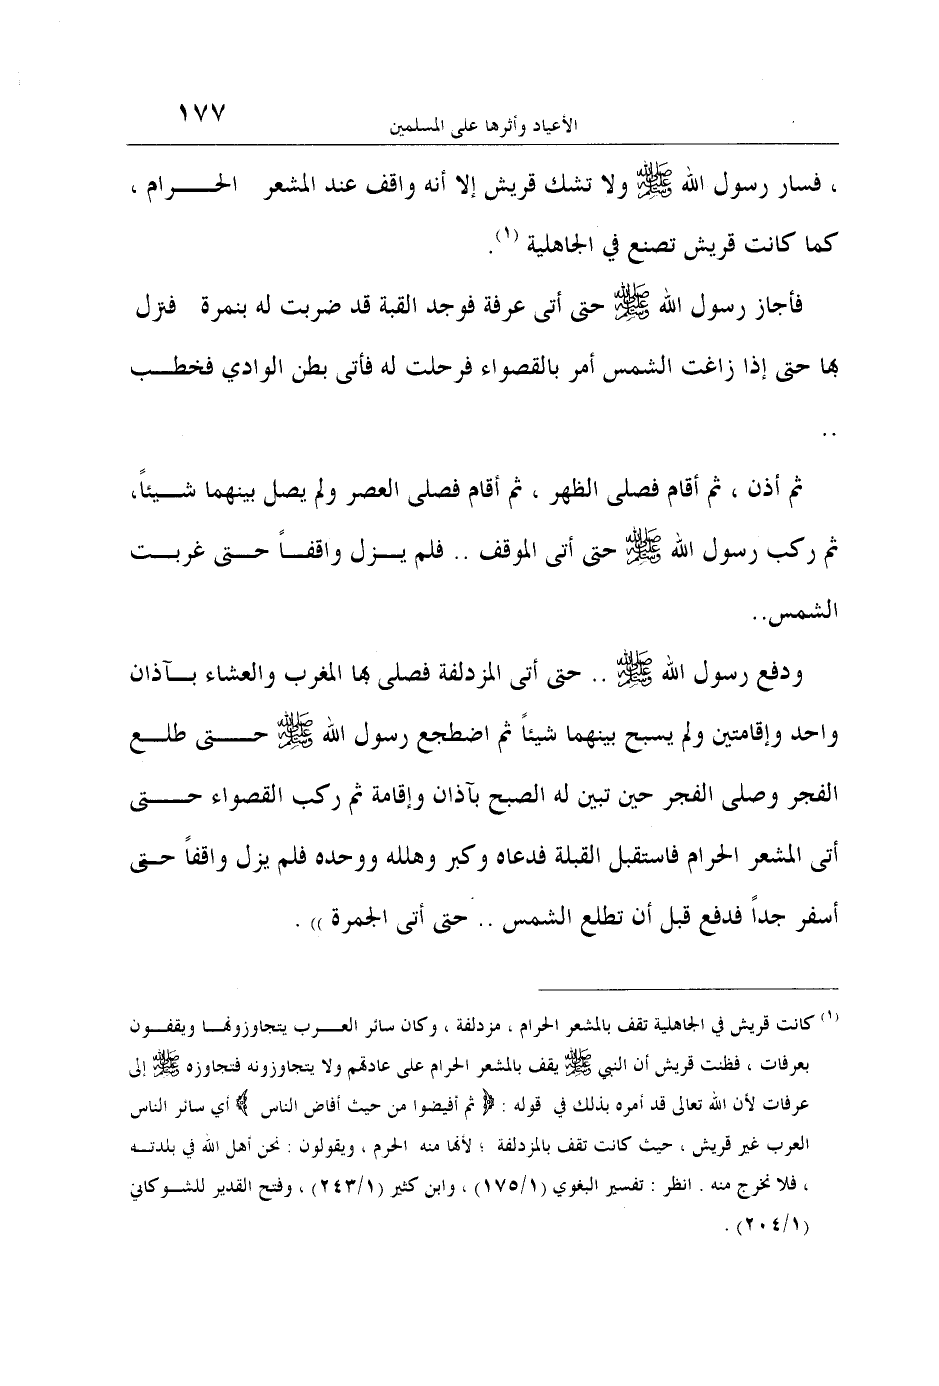 ١٧٧
الأعياد وأثرها على المسلمين
، فسار رسول الله ﷺ ولا تشك قريش إلا أنه واقف عند المشعر الحـــرام ،
كما كانت قريش تصنع في الجاهلية (١).
فأجاز رسول الله ﷺ حتى أتى عرفة فوجد القبة قد ضربت له بنمرة فنزل
بها حتى إذا زاغت الشمس أمر بالقصواء فرحلت له فأتى بطن الوادي فخطـــب
..
ثم أذن ، ثم أقام فصلى الظهر ، ثم أقام فصلى العصر ولم يصل بينهما شـــيئاً،
ثم ركب رسول الله ﷺ حتى أتى الموقف .. فلم يـــزل واقفـــاً حـــتى غربـــت
الشمس..
ودفع رسول الله ﷺ .. حتى أتى المزدلفة فصلى بها المغرب والعشاء بـــآذان
واحد وإقامتين ولم يسبح بينهما شيئاً ثم اضطجع رسول الله ﷺ حـــتى طلـــع
الفجر وصلى الفجر حين تبين له الصبح بآذان وإقامة ثم ركب القصواء حـــتى
أتى المشعر الحرام فاستقبل القبلة فدعاه وكبر وهلله ووحده فلم يزل واقفاً حـــتى
أسفر جداً فدفع قبل أن تطلع الشمس .. حتى أتى الجمرة )) .
(١) كانت قريش في الجاهلية تقف بالمشعر الحرام ، مزدلفة ، وكان سائر العـــرب يتجاوزونهـــا ويقفـــون
بعرفات ، فظنت قريش أن النبي ﷺ يقف بالمشعر الحرام على عادتهم ولا يتجاوزونه فتجاوزه ﷺ إلى
عرفات لأن الله تعالى قد أمره بذلك في قوله : ﴿ ثم أفيضوا من حيث أفاض الناس ﴾ أي سائر الناس
العرب غير قريش ، حيث كانت تقف بالمزدلفة ؛ لأنها منه الحرم ، ويقولون : نحن أهل الله في بلدتـــه
، فلا نخرج منه . انظر : تفسير البغوي (١٧٥/١) ، وابن كثير (٢٤٣/١) ، وفتح القدير للشـــوكاني
(٢٠٤/١) .